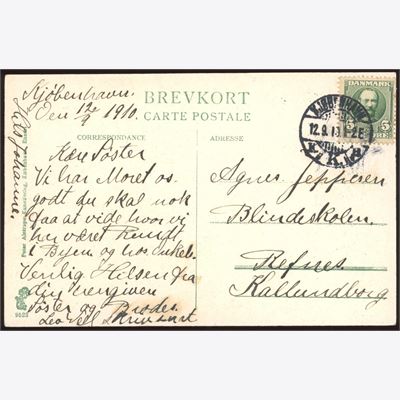 Kjøbenhavn.
Den 12/9 1910.
BREVKORT
CARTE POSTALE
CORRESPONDANCE
ADRESSE
KJØBENHAVN
12.9.10
2E
DANMARK
5 5
ØRE
Kære Søster
Vi har Moret os
godt du skal nok
faa at vide hvor vi
har været rundt
i Byen og hos Onkel
Venlig Hilsen fra
din hengivne
Søster og Broder
Agnes Jeppesen
Blindeskolen.
Refnes.
Kallundborg.
Johanne
9523